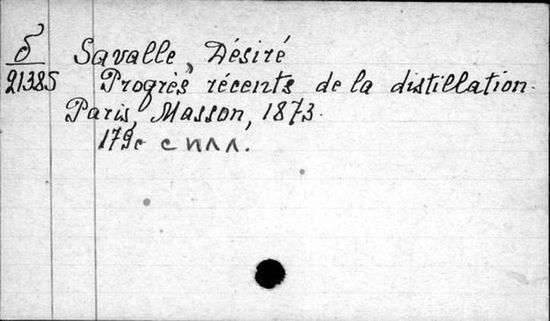 δ
21385
Savalle, Désiré
Progrès récents de la distillation.
Paris, Masson, 1873.
179c с илл.